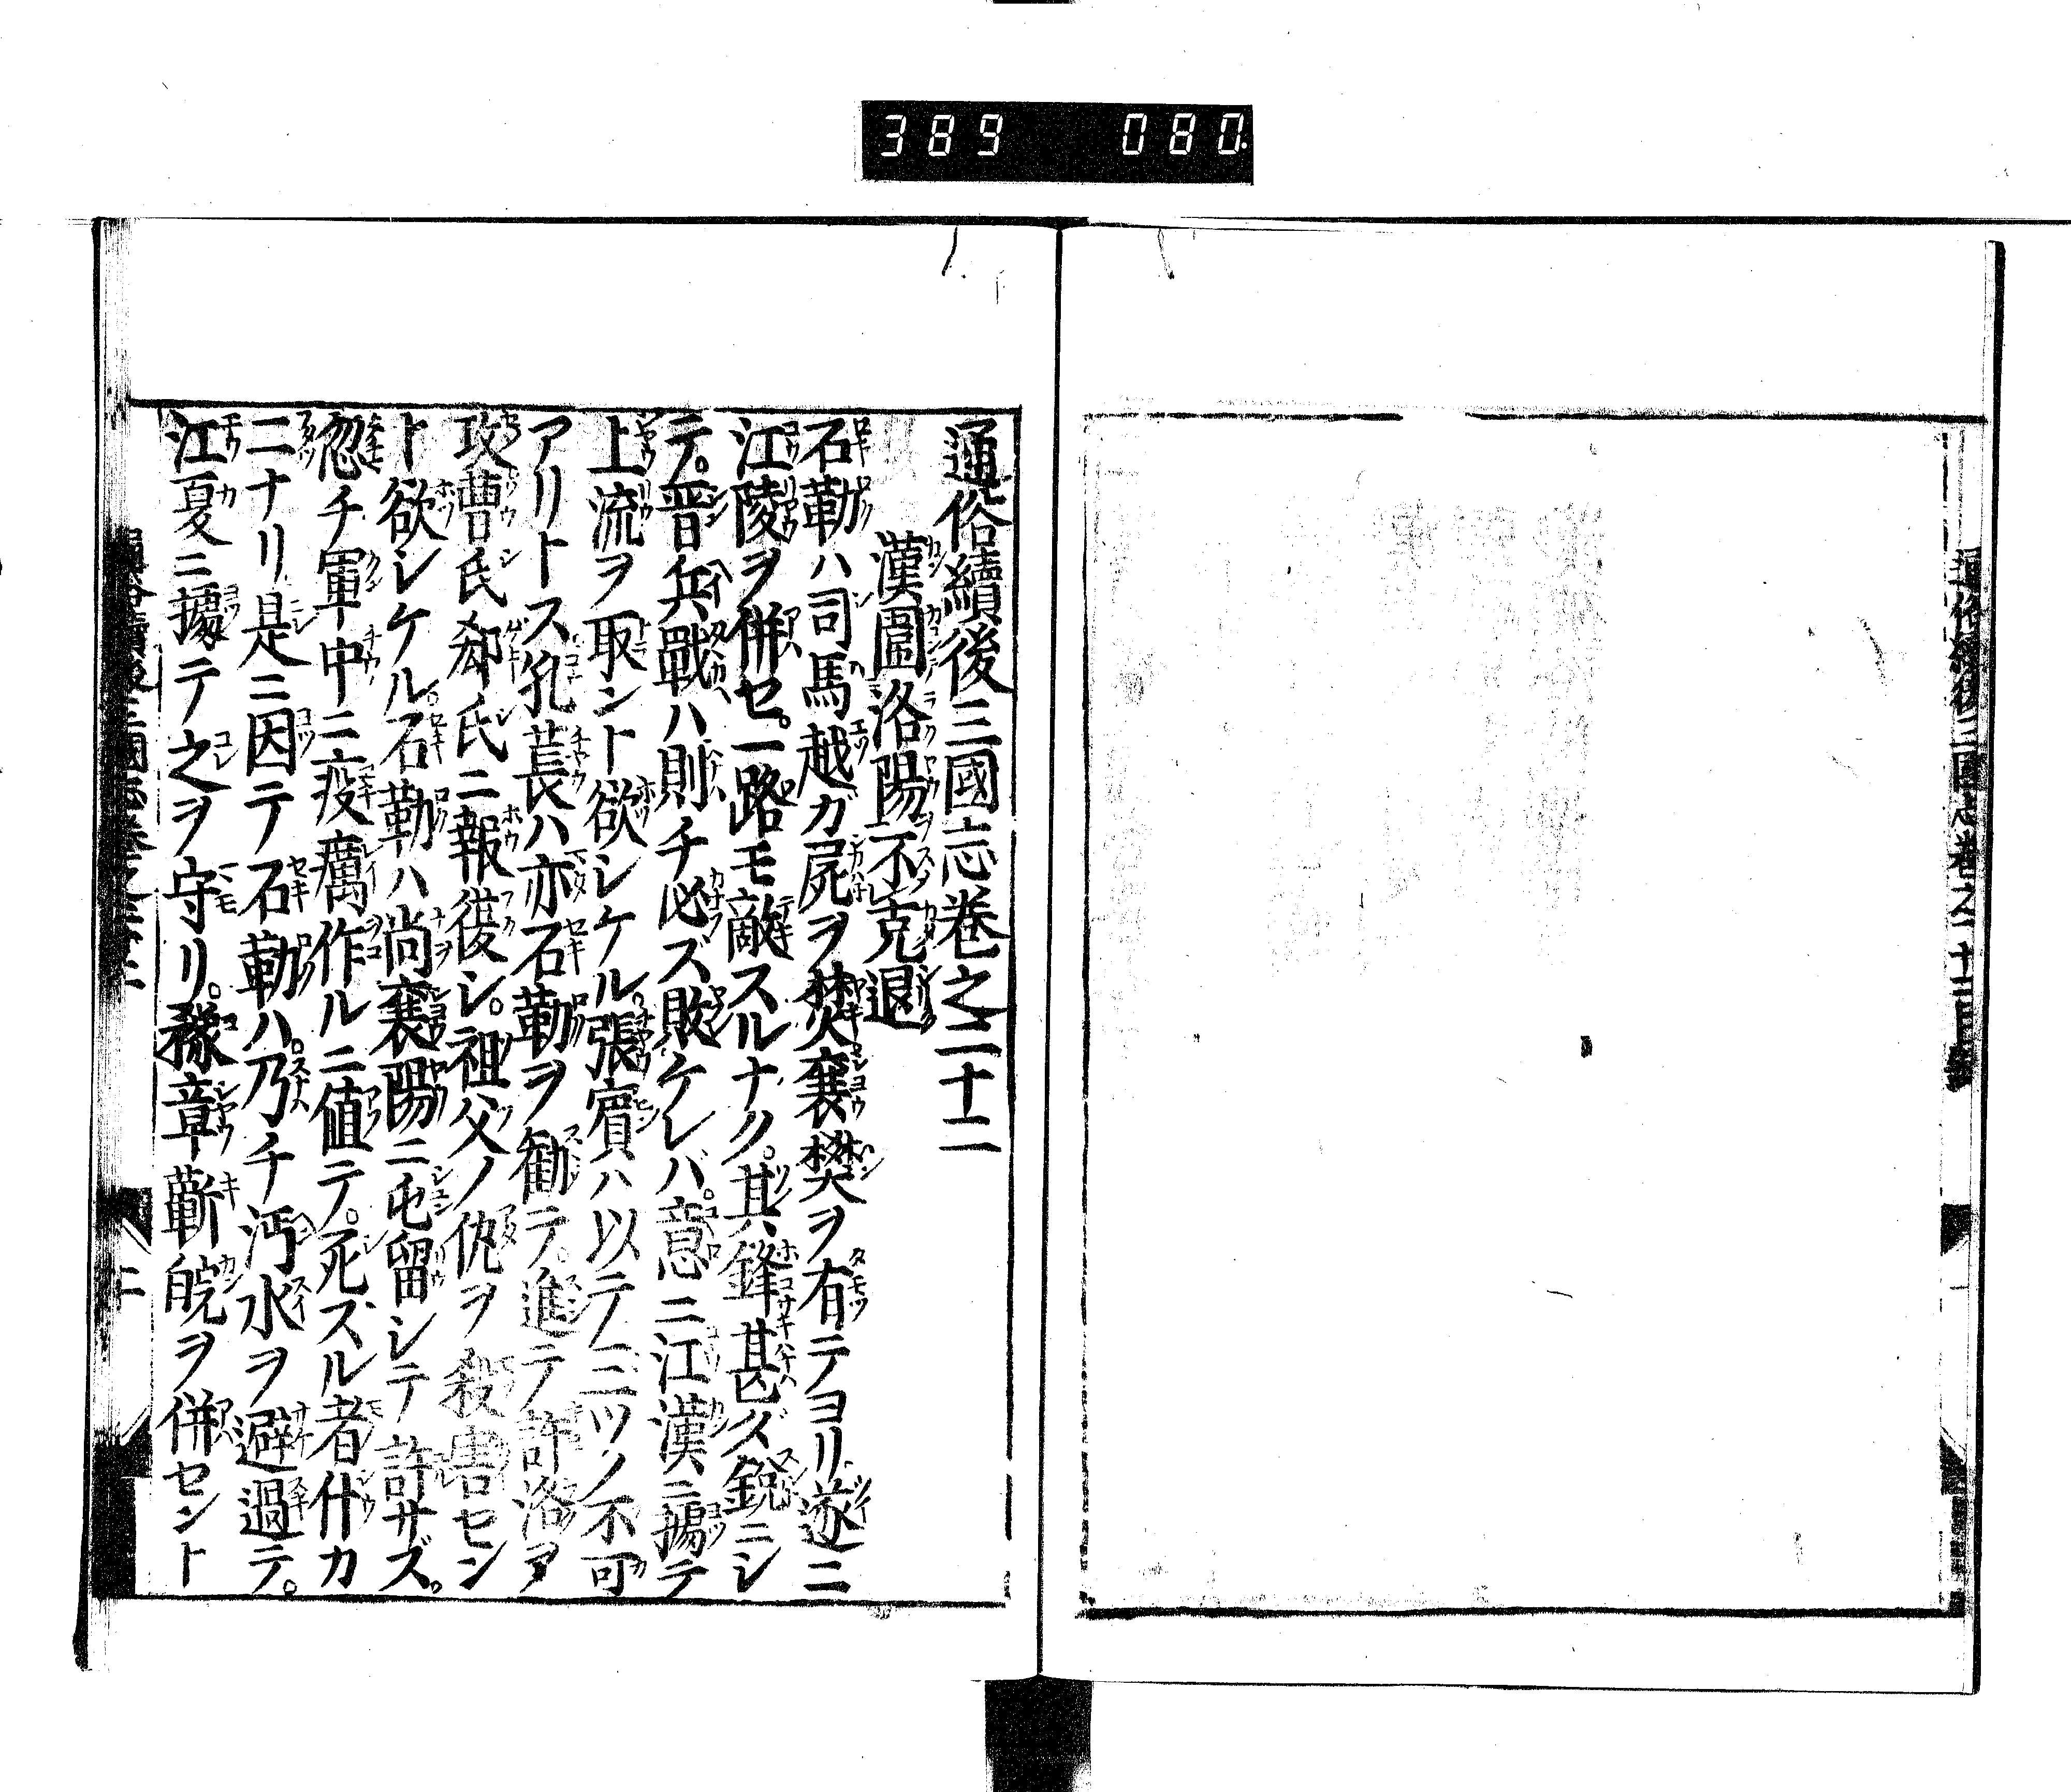 389 080
通俗續後三國志卷之二十二
漢圍洛陽不克退
石勒ハ司馬越ガ屍ヲ焚襄樊ヲ有テヨリ遂ニ
江陵ヲ併セ。一路モ敵スルナク。其鋒甚ダ銳ニシ
テ。晉兵戰ハ則チ必ズ敗ケレバ。意ニ江漢ニ據テ
上流ヲ取ント欲シケル。張賓ハ以テ三ツノ不可
アリトス孔萇ハ亦石勒ヲ勸テ。進テ許洛ヲ
攻曹氏郗氏ニ報復シ。祖父ノ仇ヲ殺害セン
ト欲シケル。石勒ハ尚襄陽ニ屯留シテ許サズ。
忽チ軍中ニ疫癘作ルニ値テ。死スル者什カ
二ナリ是ニ因テ石勒ハ。乃チ沔水ヲ避過テ。
江夏ニ據テ之ヲ守リ。豫章蘄皖ヲ併セント